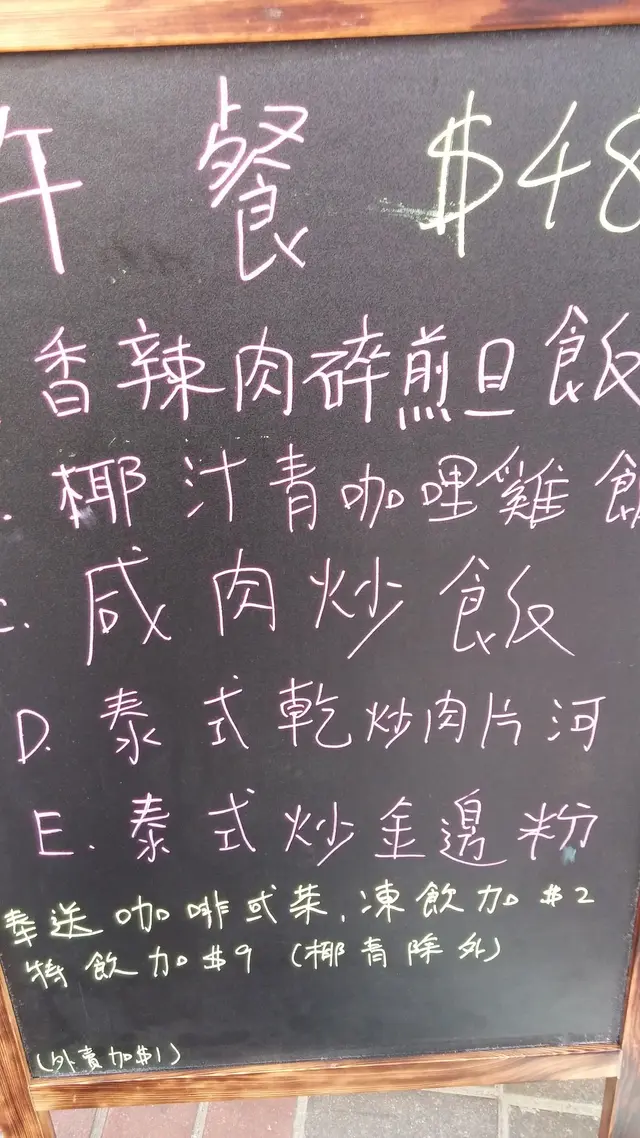 午餐 $48
香辣肉碎煎旦飯
椰汁青咖哩雞飯
C. 咸肉炒飯
D. 泰式乾炒肉片河
E. 泰式炒金邊粉
奉送咖啡或茶,凍飲加$2
特飲加$9 (椰青除外)
(外賣加$1)